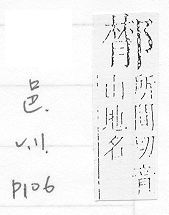 所間切音
山地名
邑.
p106